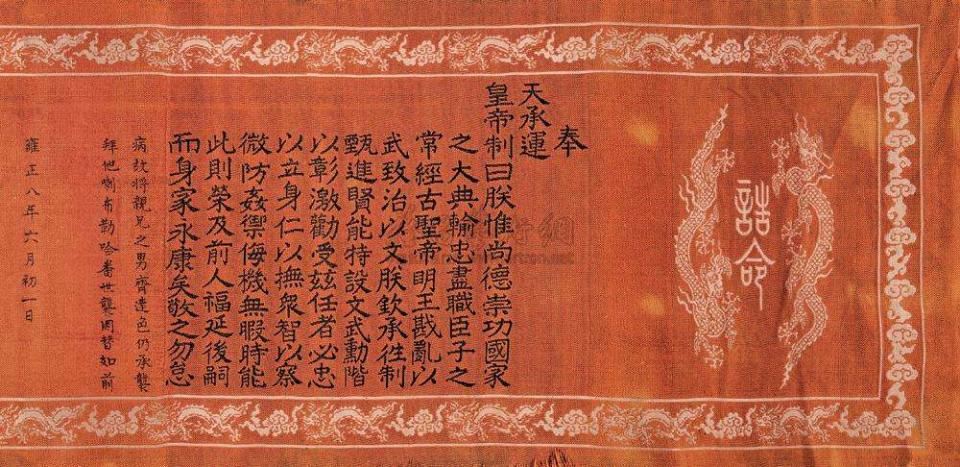 誥命
奉
天承運
皇帝制曰朕惟尚德崇功國家
之大典輸忠盡職臣子之
常經古聖帝明王戡亂以
武致治以文朕欽承往制
甄進賢能特設文武勳階
以彰激勸受茲任者必忠
以立身仁以撫眾智以察
微防姦禦侮機無暇時能
此則榮及前人福延後嗣
而身家永康矣敬之勿怠
病故將親兄之男齊達色仍承襲
拜他喇布勒哈番世襲罔替如前
雍正八年六月初一日